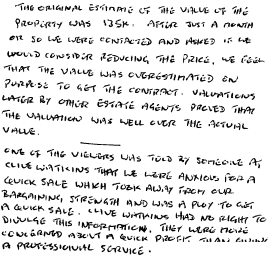 THE ORIGINAL ESTIMATE OF THE VALUE OF THE
PROPERTY WAS 135K. AFTER JUST A MONTH
OR SO WE WERE CONTACTED AND ASKED IF WE
WOULD CONSIDER REDUCING THE PRICE, WE FEEL
THAT THE VALUE WAS OVERESTIMATED ON
PURPOSE TO GET THE CONTRACT. VALUATIONS
LATER BY OTHER ESTATE AGENTS PROVED THAT
THE VALUATION WAS WELL OVER THE ACTUAL
VALUE.
ONE OF THE VIEWERS WAS TOLD BY SOMEONE AT
CLIVE WATKINS THAT WE WERE ANXIOUS FOR A
QUICK SALE WHICH TOOK AWAY FROM OUR
BARGAINING STRENGTH AND WAS A PLOY TO GET
A QUICK SALE. CLIVE WATKINS HAD NO RIGHT TO
DIVULGE THIS INFORMATION, THEY WERE MORE
CONCERNED ABOUT A QUICK PROFIT THAN GIVING
A PROFESSIONAL SERVICE.